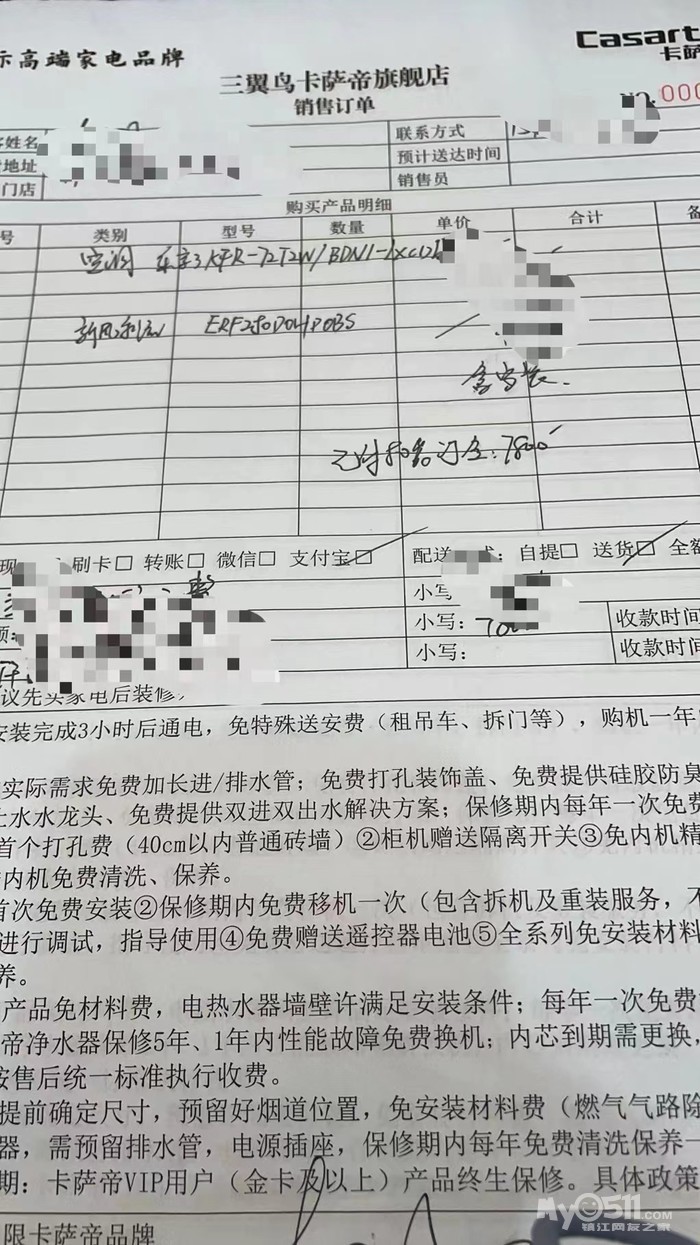 示高端家电品牌
Casart
卡萨
三翼鸟卡萨帝旗舰店
销售订单
NO. 000
姓名
联系方式
地址
预计送达时间
门店
销售员
购买产品明细
号 类别 型号 数量 单价 合计 备
空调
新风系统 ERF250D04
含安装.
已付 订金: 7800
现 刷卡□ 转账□ 微信□ 支付宝□ 配送 式: 自提□ 送货□ 全额
小写
额: 小写: 收款时间
小写: 收款时间
议先买家电后装修
安装完成3小时后通电，免特殊送安费（租吊车、拆门等），购机一年
实际需求免费加长进/排水管；免费打孔装饰盖、免费提供硅胶防臭
水水龙头、免费提供双进双出水解决方案；保修期内每年一次免费
首个打孔费（40cm以内普通砖墙）②柜机赠送隔离开关③免内机精
内机免费清洗、保养。
首次免费安装②保修期内免费移机一次（包含拆机及重装服务，不
进行调试，指导使用④免费赠送遥控器电池⑤全系列免安装材料
养。
产品免材料费，电热水器墙壁许满足安装条件；每年一次免费
帝净水器保修5年、1年内性能故障免费换机；内芯到期需更换，
按售后统一标准执行收费。
提前确定尺寸，预留好烟道位置，免安装材料费（燃气气路除
器，需预留排水管，电源插座，保修期内每年免费清洗保养一
期：卡萨帝VIP用户（金卡及以上）产品终生保修。具体政策
限卡萨帝品牌
My0511.com
镇江网友之家